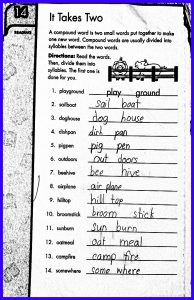 14
READING
It Takes Two
A compound word is two small words put together to make
one new word. Compound words are usually divided into
syllables between the two words.
Directions: Read the words.
Then, divide them into
syllables. The first one is
done for you.
1. playground play ground
2. sailboat sail boat
3. doghouse dog house
4. dishpan dish pan
5. pigpen pig pen
6. outdoors out doors
7. beehive bee hive
8. airplane air plane
9. hilltop hill top
10. broomstick broom stick
11. sunburn sun burn
12. oatmeal oat meal
13. campfire camp fire
14. somewhere some where